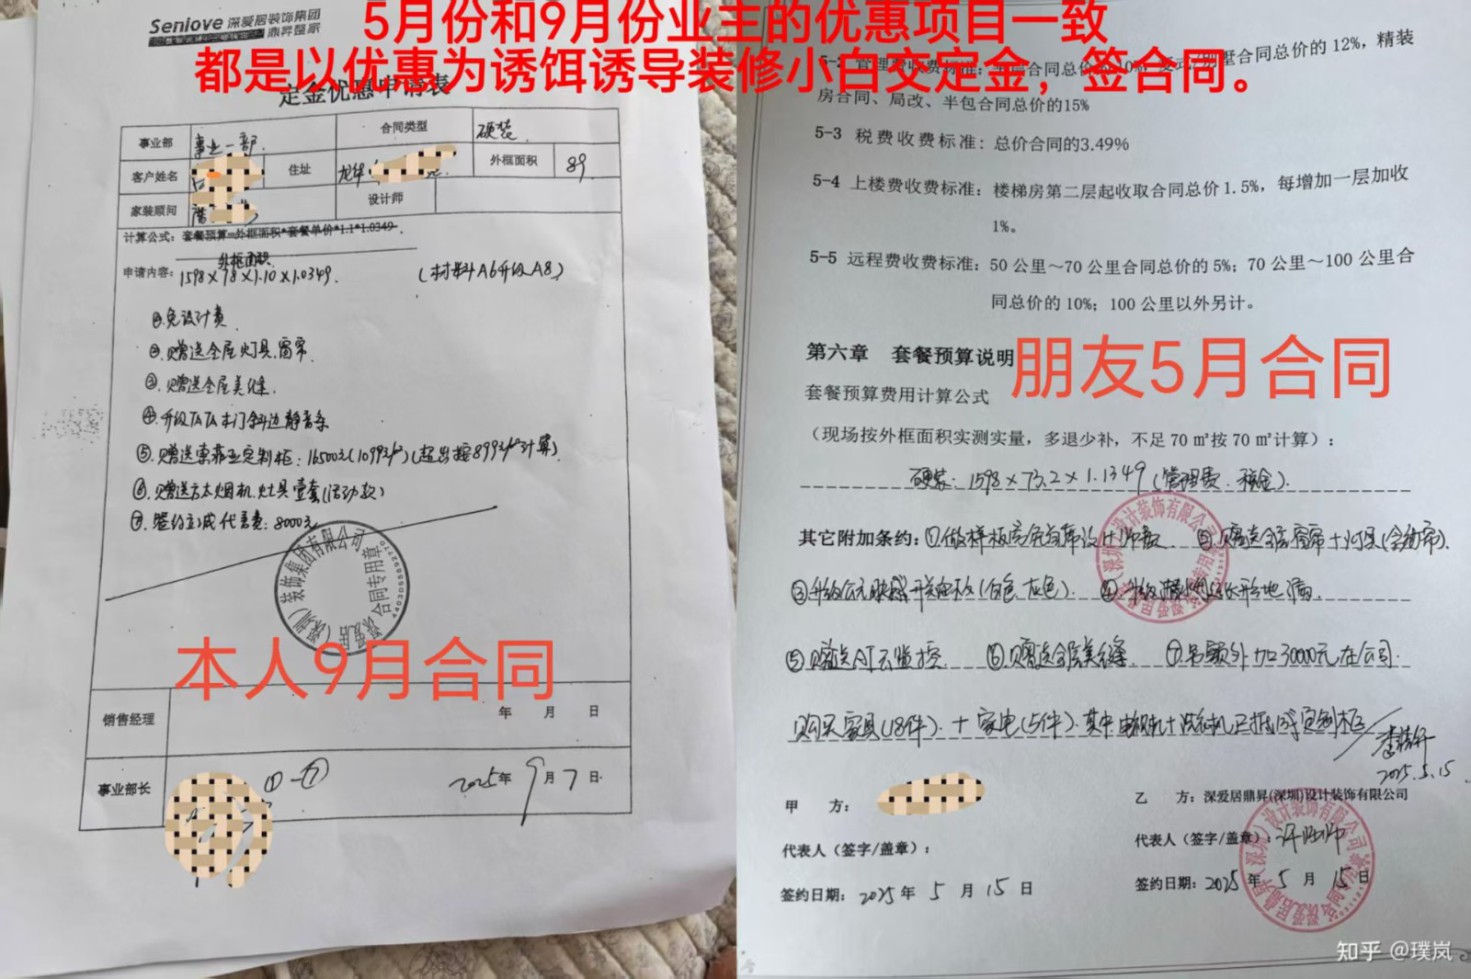 5月份和9月份业主的优惠项目一致
都是以优惠为诱饵诱导装修小白交定金，签合同。
Senlove 深爱居装饰集团
鼎昇整家
定金优惠申请表
事业部 事业一部
合同类型 硬装
客户姓名
住址 龙华
外框面积 89
家装顾问
设计师
计算公式：套餐预算=外框面积*套餐单价*1.1*1.0349
外框面积
申请内容：1598×78×1.10×1.0349. (材料A6升级A8)
①.免设计费
②.赠送全屋灯具.窗帘.
③.赠送全屋美缝.
④.升级TATA木门斜边静音条
⑤.赠送索菲亚定制柜：16500元(1099元/㎡)(超出按899元/㎡计算)
⑥.赠送方太烟机.灶具壹套(活动款)
⑦.签约立减代言费：8000元
深爱居(深圳)装饰集团有限公司
合同专用章
本人9月合同
销售经理
年 月 日
事业部长
①-⑦
2025年 9月 7日
5-2 管理费收费标准：平层合同总价的10%，复式/别墅合同总价的12%，精装
房合同、局改、半包合同总价的15%
5-3 税费收费标准：总价合同的3.49%
5-4 上楼费收费标准：楼梯房第二层起收取合同总价1.5%，每增加一层加收
1%。
5-5 远程费收费标准：50公里～70公里合同总价的5%；70公里～100公里合
同总价的10%；100公里以外另计。
第六章 套餐预算说明
朋友5月合同
套餐预算费用计算公式
（现场按外框面积实测实量，多退少补，不足70㎡按70㎡计算）：
硬装：1598×73.2×1.1349(管理费.税金).
其它附加条约：①做样板房免首席设计师费 ②赠送全屋窗帘+灯具(含纱帘).
⑤赠送AI云监控. ⑥赠送全屋美缝 ⑦另额外加30000元在公司
购买家具(18件).+家电(5件).其中
2025.5.15
甲 方：
乙 方：深爱居鼎昇(深圳)设计装饰有限公司
代表人（签字/盖章）：
代表人（签字/盖章）：
签约日期：2025年 5月 15日
签约日期：2025年 5月 15日
知乎 @璞岚